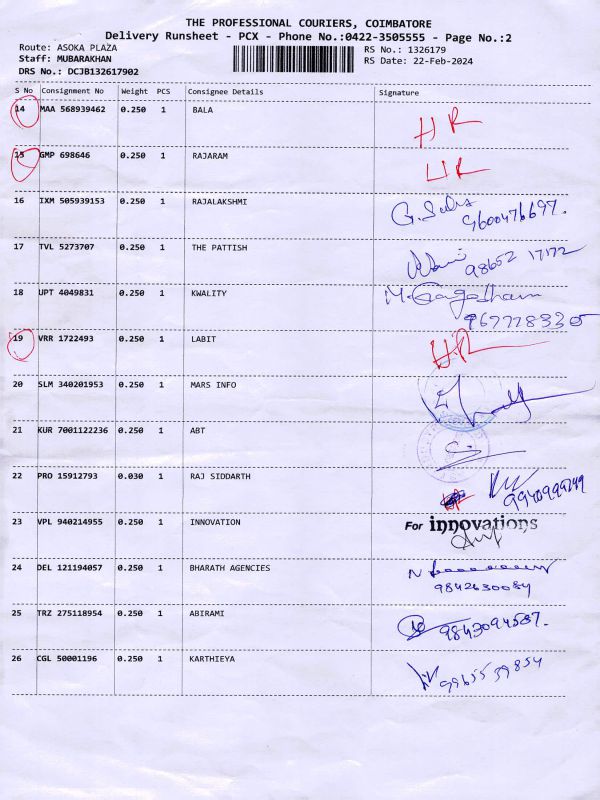 THE PROFESSIONAL COURIERS, COIMBATORE
Delivery Runsheet - PCX - Phone No.:0422-3505555 - Page No.:2
Route: ASOKA PLAZA RS No.: 1326179
Staff: MUBARAKHAN RS Date: 22-Feb-2024
DRS No.: DCJB132617902
S No Consignment No Weight PCS Consignee Details Signature
14 MAA 568939462 0.250 1 BALA HR
15 GMP 698646 0.250 1 RAJARAM HR
16 IXM 505939153 0.250 1 RAJALAKSHMI
9600476697.
17 TVL 5273707 0.250 1 THE PATTISH
98652 17172
18 UPT 4049831 0.250 1 KWALITY
9677783305
19 VRR 1722493 0.250 1 LABIT HR
20 SLM 340201953 0.250 1 MARS INFO
21 KUR 7001122236 0.250 1 ABT
22 PRO 15912793 0.030 1 RAJ SIDDARTH
23 VPL 940214955 0.250 1 INNOVATION For innovations
24 DEL 121194057 0.250 1 BHARATH AGENCIES
9842630084
25 TRZ 275118954 0.250 1 ABIRAMI 9843094587.
26 CGL 50001196 0.250 1 KARTHIEYA 9965539854